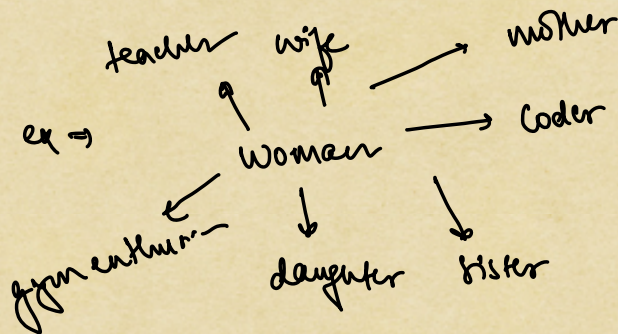 teacher
wife
mother
ex ⇒
woman
Coder
gym
daughter
sister